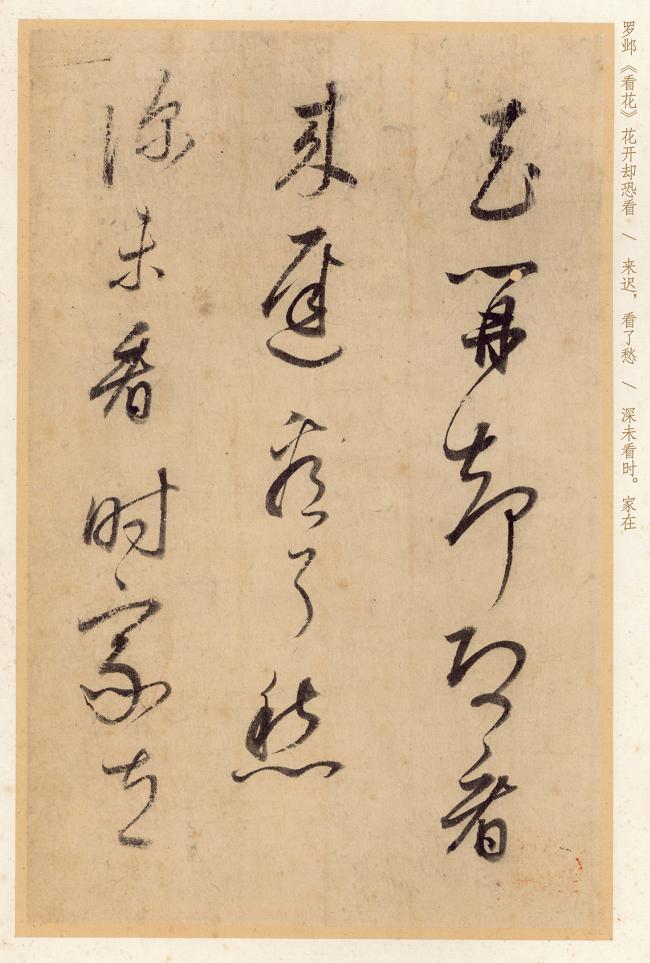 罗邺《看花》花开却恐看 / 来迟，看了愁 / 深未看时。家在
花开却恐看
来遲看了愁
深未看时家在